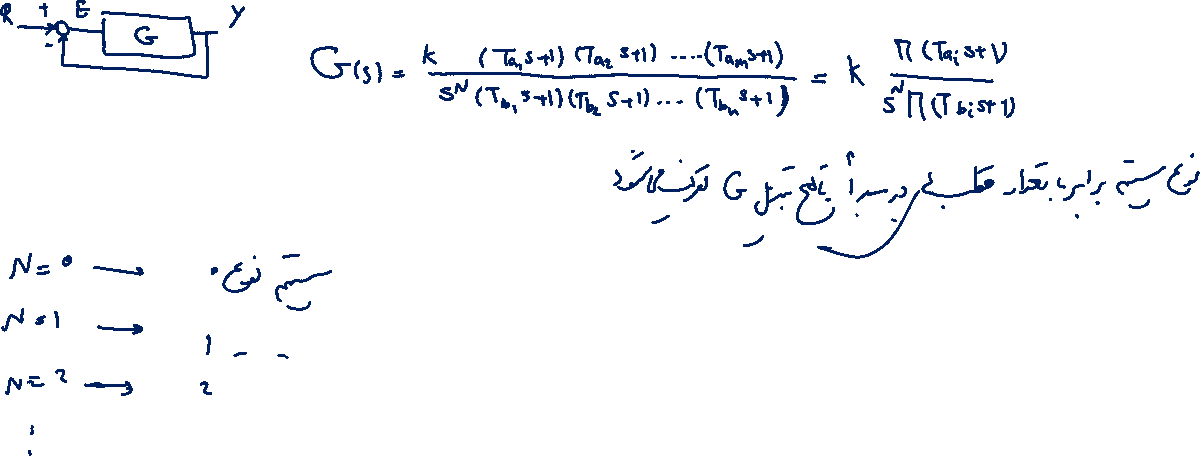 R + E G Y
-
G(s) = k (Ta₁s+1) (Ta₂ s+1) ....(Tam s+1) / s^N (Tb₁ s+1)(Tb₂ s+1)... (Tbn s+1) = k Π(Tai s+1) / s^N Π(Tbi s+1)
نوع سیستم برابر با تعداد قطب های در مبدأ تابع تبدیل G تعریف می شود
N = 0 → سیستم نوع 0
N = 1 → 1 - -
N = 2 → 2
⋮